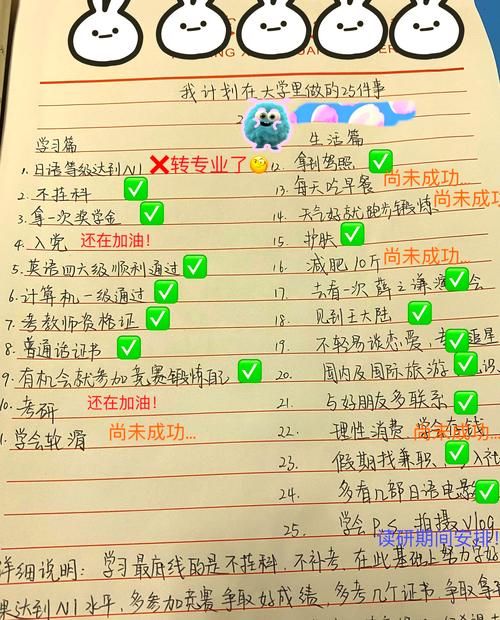 我计划在大学里做的25件事
学习篇
1. 日语等级达到N1 ❌转专业了
2. 不挂科
3. 拿一次奖学金
4. 入党 还在加油!
5. 英语四六级顺利通过
6. 计算机一级通过
7. 考教师资格证
8. 普通话证书
9. 有机会就参加竞赛锻炼自己
10. 考研 还在加油!
1. 学会软 尚未成功...
生活篇
12. 拿到驾照
13. 每天吃早餐 尚未成功...
14. 天气好就跑步锻炼 尚未成功...
15. 护肤
16. 减肥10斤 尚未成功...
17. 去看一次薛之谦演 会
18. 见到王大陆
19. 不轻易谈恋爱, 追星
20. 国内及国际旅游
21. 与好朋友多联系
22. 理性消费 学会存钱 尚未成功...
23. 假期找兼职、 入社
24. 多看几部日语电影
25. 学会P S 拍摄Vlog
读研期间安排!
详细说明: 学习最底线的是不挂科,不补考,在此基础上努力学好
果达到N1水平,多参加竞赛争取好成绩,多考几个证书,争取拿